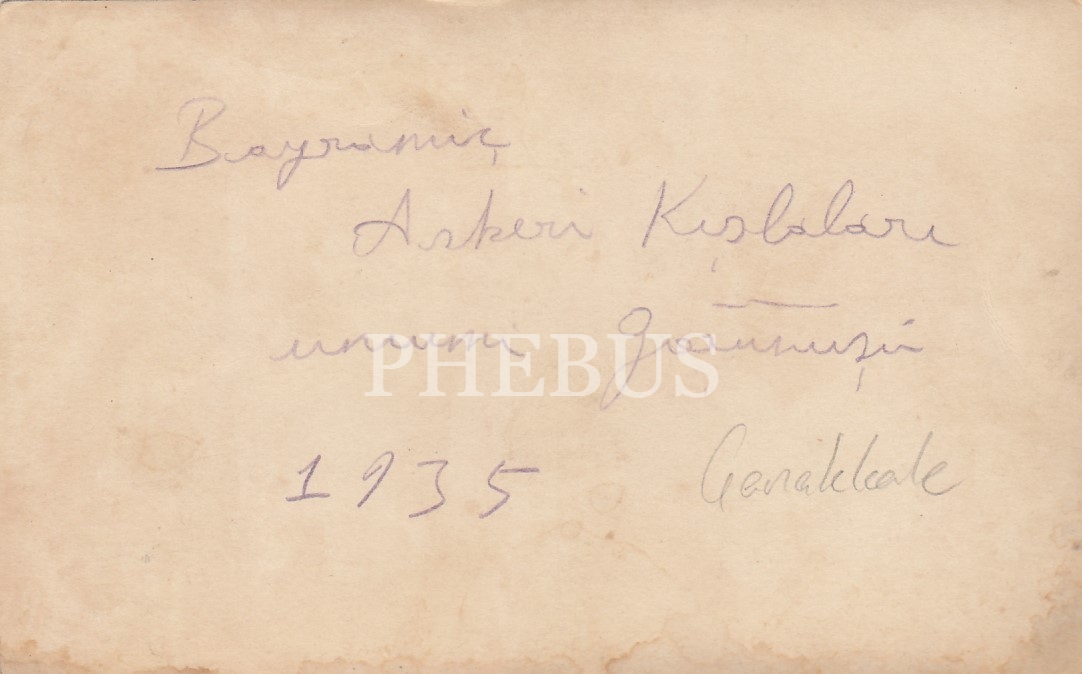 Bayramiç
Askeri Kışlaları
umumi görünüşü
PHEBUS
1935 Çanakkale